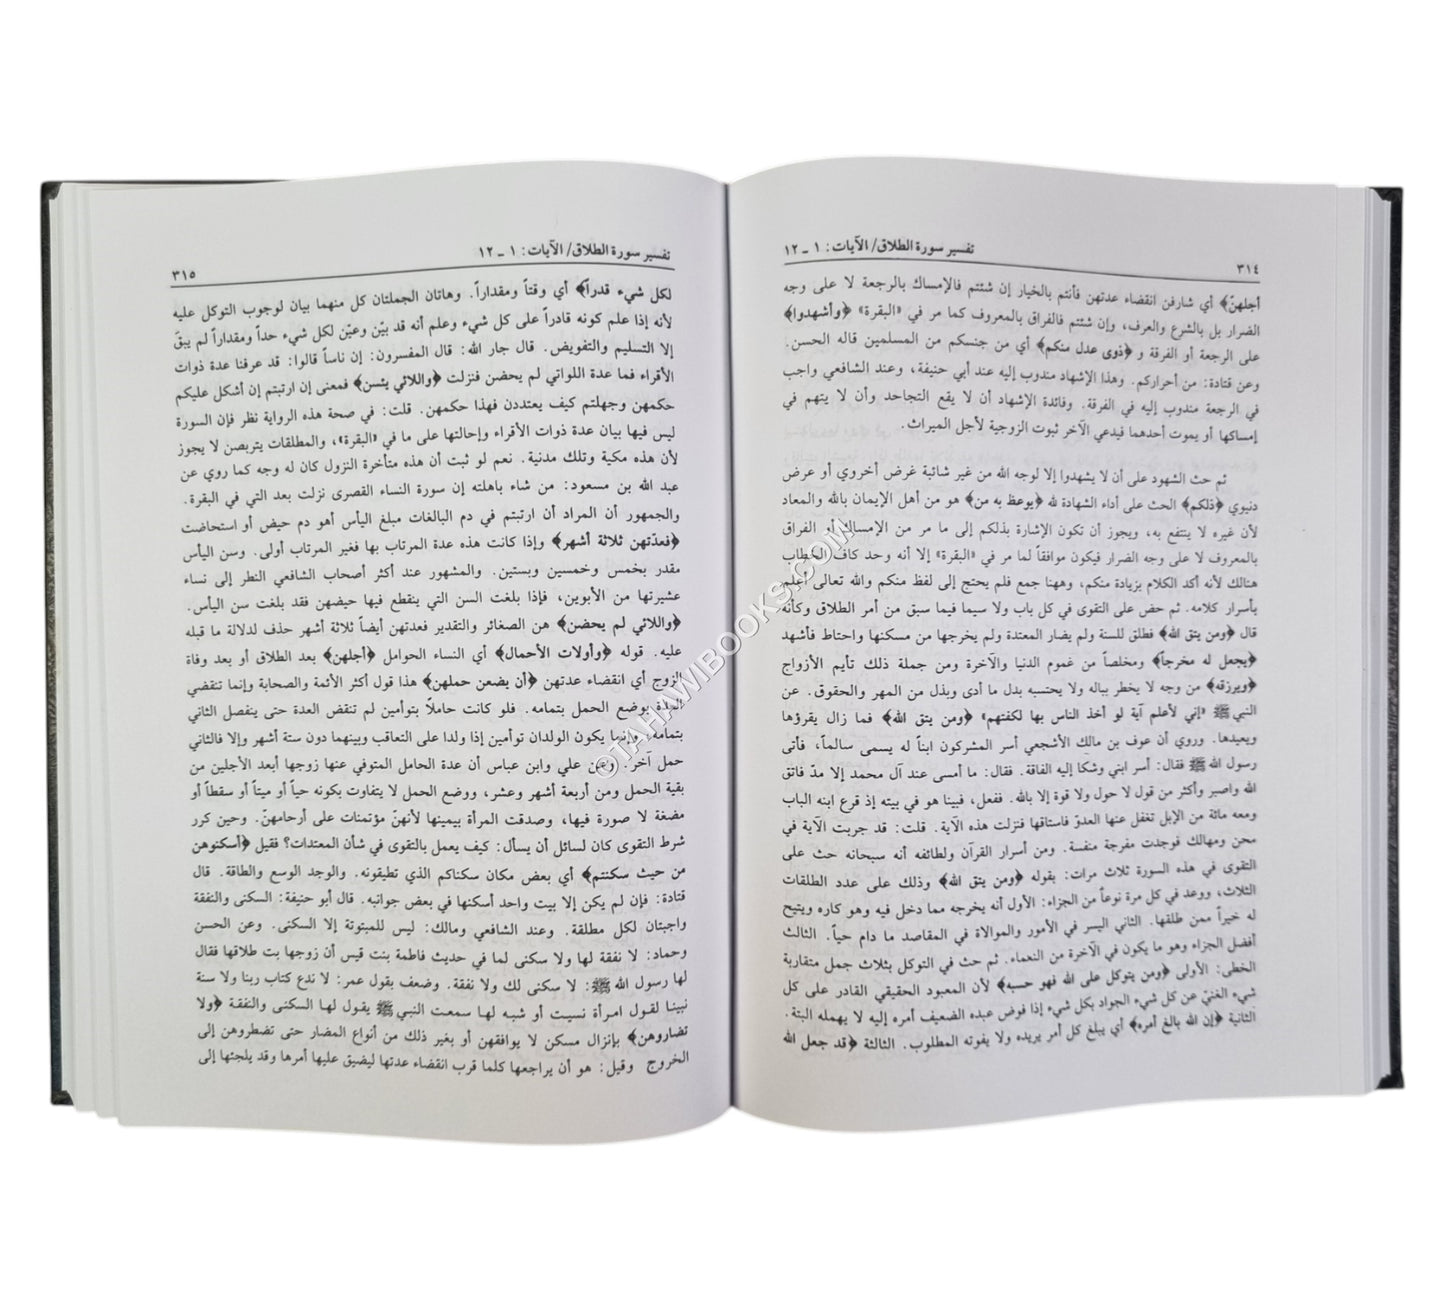 ٣١٤
تفسير سورة الطلاق/ الآيات: ١ ـ ١٢
أجلهنّ﴾ أي شارفن انقضاء عدتهن فأنتم بالخيار إن شئتم فالإمساك بالرجعة لا على وجه
الضرار بل بالشرع والعرف، وإن شئتم فالفراق بالمعروف كما مر في «البقرة» ﴿وأشهدوا﴾
على الرجعة أو الفرقة و ﴿ذوى عدل منكم﴾ أي من جنسكم من المسلمين قاله الحسن.
وعن قتادة: من أحراركم. وهذا الإشهاد مندوب إليه عند أبي حنيفة، وعند الشافعي واجب
في الرجعة مندوب إليه في الفرقة. وفائدة الإشهاد أن لا يقع التجاحد وأن لا يتهم في
إمساكها أو يموت أحدهما فيدعي الآخر ثبوت الزوجية لأجل الميراث.
ثم حث الشهود على أن لا يشهدوا إلا لوجه الله من غير شائبة غرض أخروي أو عرض
دنيوي ﴿ذلكم﴾ الحث على أداء الشهادة لله ﴿يوعظ به من﴾ هو من أهل الإيمان بالله والمعاد
لأن غيره لا ينتفع به، ويجوز أن تكون الإشارة بذلكم إلى ما مر من الإمساك أو الفراق
بالمعروف لا على وجه الضرار فيكون موافقاً لما مر في «البقرة» إلا أنه وحد كاف الخطاب
هنالك لأنه أكد الكلام بزيادة منكم، وههنا جمع فلم يحتج إلى لفظ منكم والله تعالى أعلم
بأسرار كلامه. ثم حض على التقوى في كل باب ولا سيما فيما سبق من أمر الطلاق وكأنه
قال ﴿ومن يتق الله﴾ فطلق للسنة ولم يضار المعتدة ولم يخرجها من مسكنها واحتاط فأشهد
﴿يجعل له مخرجاً﴾ ومخلصاً من غموم الدنيا والآخرة ومن جملة ذلك تأيم الأزواج
﴿ويرزقه﴾ من وجه لا يخطر بباله ولا يحتسبه بدل ما أدى وبذل من المهر والحقوق. عن
النبي ﷺ «إني لأعلم آية لو أخذ الناس بها لكفتهم» ﴿ومن يتق الله﴾ فما زال يقرؤها
ويعيدها. وروي أن عوف بن مالك الأشجعي أسر المشركون ابناً له يسمى سالماً، فأتى
رسول الله ﷺ فقال: أسر ابني وشكا إليه الفاقة. فقال: ما أمسى عند آل محمد إلا مدّ فاتق
الله واصبر وأكثر من قول لا حول ولا قوة إلا بالله. ففعل، فبينا هو في بيته إذ قرع ابنه الباب
ومعه مائة من الإبل تغفل عنها العدوّ فاستاقها فنزلت هذه الآية. قلت: قد جربت الآية في
محن ومهالك فوجدت مفرجة منفسة. ومن أسرار القرآن ولطائفه أنه سبحانه حث على
التقوى في هذه السورة ثلاث مرات: بقوله ﴿ومن يتق الله﴾ وذلك على عدد الطلقات
الثلاث، ووعد في كل مرة نوعاً من الجزاء: الأول أنه يخرجه مما دخل فيه وهو كاره ويتيح
له خيراً ممن طلقها. الثاني اليسر في الأمور والموالاة في المقاصد ما دام حياً. الثالث
أفضل الجزاء وهو ما يكون في الآخرة من النعماء. ثم حث في التوكل بثلاث جمل متقاربة
الخطى: الأولى ﴿ومن يتوكل على الله فهو حسبه﴾ لأن المعبود الحقيقي القادر على كل
شيء الغنيّ عن كل شيء الجواد بكل شيء إذا فوض عبده الضعيف أمره إليه لا يهمله البتة.
الثانية ﴿إن الله بالغ أمره﴾ أي يبلغ كل أمر يريده ولا يفوته المطلوب. الثالثة ﴿قد جعل الله
تفسير سورة الطلاق/ الآيات: ١ ـ ١٢
٣١٥
لكل شيء قدراً﴾ أي وقتاً ومقداراً. وهاتان الجملتان كل منهما بيان لوجوب التوكل عليه
لأنه إذا علم كونه قادراً على كل شيء وعلم أنه قد بيّن وعيّن لكل شيء حداً ومقداراً لم يبقَ
إلا التسليم والتفويض. قال جار الله: قال المفسرون: إن ناساً قالوا: قد عرفنا عدة ذوات
الأقراء فما عدة اللواتي لم يحضن فنزلت ﴿واللائي يئسن﴾ فمعنى إن ارتبتم إن أشكل عليكم
حكمهن وجهلتم كيف يعتددن فهذا حكمهن. قلت: في صحة هذه الرواية نظر فإن السورة
ليس فيها بيان عدة ذوات الأقراء وإحالتها على ما في «البقرة»، والمطلقات يتربصن لا يجوز
لأن هذه مكية وتلك مدنية. نعم لو ثبت أن هذه متأخرة النزول كان له وجه كما روي عن
عبد الله بن مسعود: من شاء باهلته إن سورة النساء القصرى نزلت بعد التي في البقرة.
والجمهور أن المراد أن ارتبتم في دم البالغات مبلغ اليأس أهو دم حيض أو استحاضت
﴿فعدّتهن ثلاثة أشهر﴾ وإذا كانت هذه عدة المرتاب بها فغير المرتاب أولى. وسن اليأس
مقدر بخمس وخمسين وبستين. والمشهور عند أكثر أصحاب الشافعي النطر إلى نساء
عشيرتها من الأبوين، فإذا بلغت السن التي ينقطع فيها حيضهن فقد بلغت سن اليأس.
﴿واللائي لم يحضن﴾ هن الصغائر والتقدير فعدتهن أيضاً ثلاثة أشهر حذف لدلالة ما قبله
عليه. قوله ﴿وأولات الأحمال﴾ أي النساء الحوامل ﴿أجلهن﴾ بعد الطلاق أو بعد وفاة
الزوج أي انقضاء عدتهن ﴿أن يضعن حملهن﴾ هذا قول أكثر الأئمة والصحابة وإنما تنقضي
العدة بوضع الحمل بتمامه. فلو كانت حاملاً بتوأمين لم تنقض العدة حتى ينفصل الثاني
بتمامه، وإنما يكون الولدان توأمين إذا ولدا على التعاقب وبينهما دون ستة أشهر وإلا فالثاني
حمل آخر. وعن علي وابن عباس أن عدة الحامل المتوفي عنها زوجها أبعد الأجلين من
بقية الحمل ومن أربعة أشهر وعشر، ووضع الحمل لا يتفاوت بكونه حياً أو ميتاً أو سقطاً أو
مضغة لا صورة فيها، وصدقت المرأة بيمينها لأنهنّ مؤتمنات على أرحامهنّ. وحين كرر
شرط التقوى كان لسائل أن يسأل: كيف يعمل بالتقوى في شأن المعتدات؟ فقيل ﴿أسكنوهن
من حيث سكنتم﴾ أي بعض مكان سكناكم الذي تطيقونه. والوجد الوسع والطاقة. قال
قتادة: فإن لم يكن إلا بيت واحد أسكنها في بعض جوانبه. قال أبو حنيفة: السكنى والنفقة
واجبتان لكل مطلقة. وعند الشافعي ومالك: ليس للمبتوتة إلا السكنى. وعن الحسن
وحماد: لا نفقة لها ولا سكنى لما في حديث فاطمة بنت قيس أن زوجها بت طلاقها فقال
لها رسول الله ﷺ: لا سكنى لك ولا نفقة. وضعف بقول عمر: لا ندع كتاب ربنا ولا سنة
نبينا لقول امرأة نسيت أو شبه لها سمعت النبي ﷺ يقول لها السكنى والنفقة ﴿ولا
تضاروهن﴾ بإنزال مسكن لا يوافقهن أو بغير ذلك من أنواع المضار حتى تضطروهن إلى
الخروج وقيل: هو أن يراجعها كلما قرب انقضاء عدتها ليضيق عليها أمرها وقد يلجئها إلى
©TAHAWIBOOKS.COM